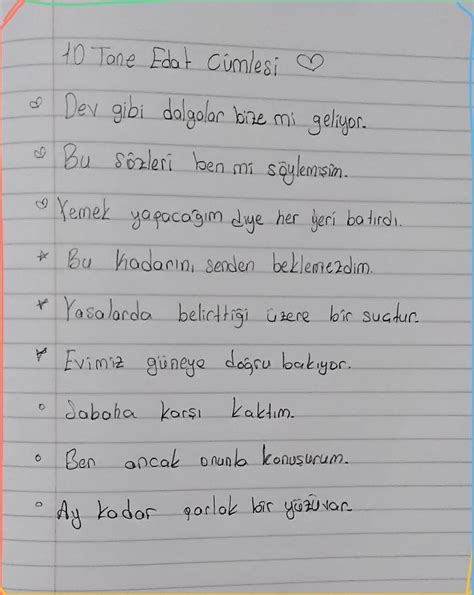 10 Tane Edat Cümlesi
Dev gibi dalgalar bize mi geliyor.
Bu sözleri ben mi söylemişim.
Yemek yapacağım diye her yeri batırdı.
Bu kadarını senden beklemezdim.
Yasalarda belirttiği üzere bir suçtur.
Evimiz güneye doğru bakıyor.
Sabaha karşı kalktım.
Ben ancak onunla konuşurum.
Ay kadar parlak bir yüzü var.